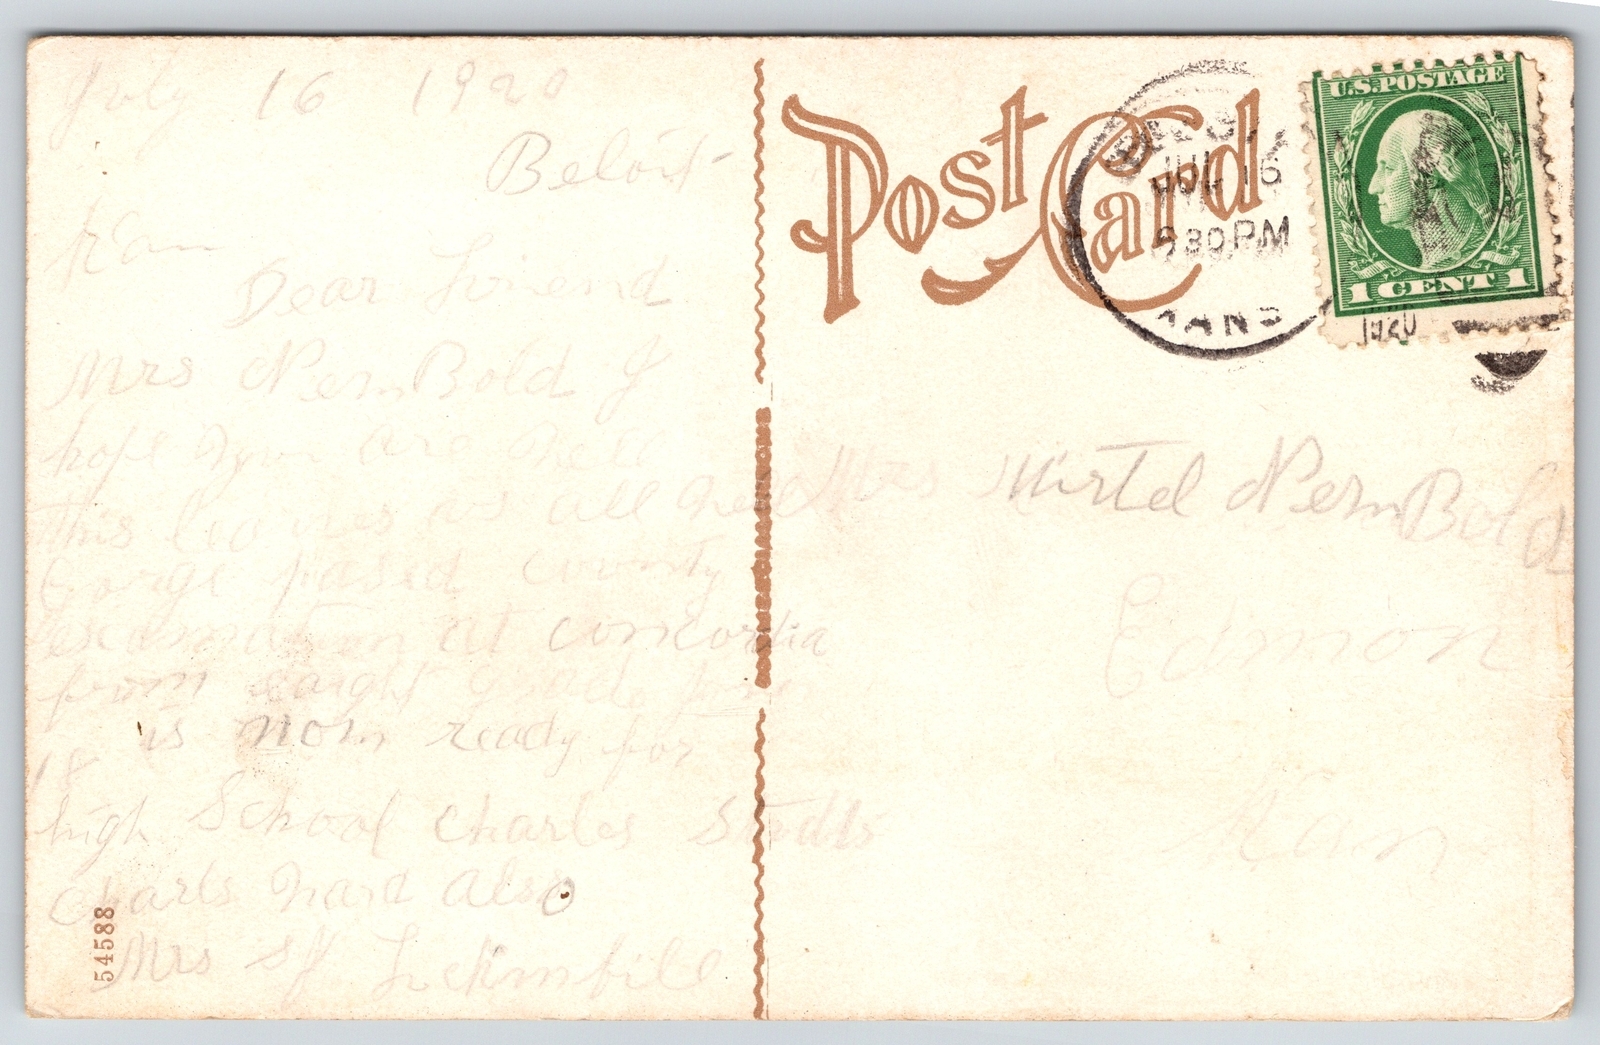 July 16 1920
Beloit
Kan
Dear Friend
Mrs NernBold I
hope you are well
This leaves us all well
Gorge pased county
excamation at concordia
from eaight grade
is now ready for
18
high School Charles
Charls hard also
Mrs
54588
Post Card
JUL 16
30 PM
KANS
1920
U.S. POSTAGE
1 CENT 1
Mrs Mirtel NernBold
Edmon
Kan